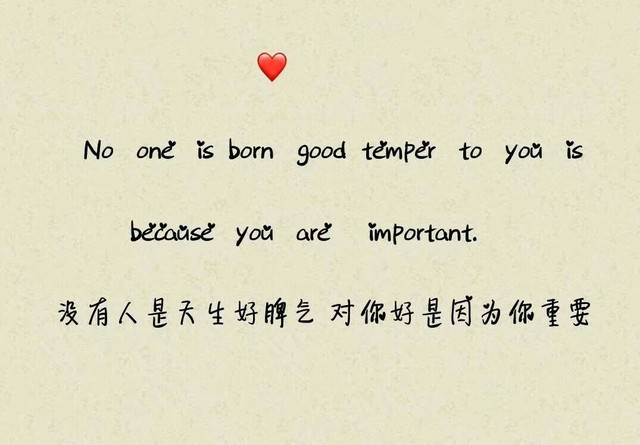 No one is born good temper to you is
because you are important.
没有人是天生好脾气 对你好是因为你重要